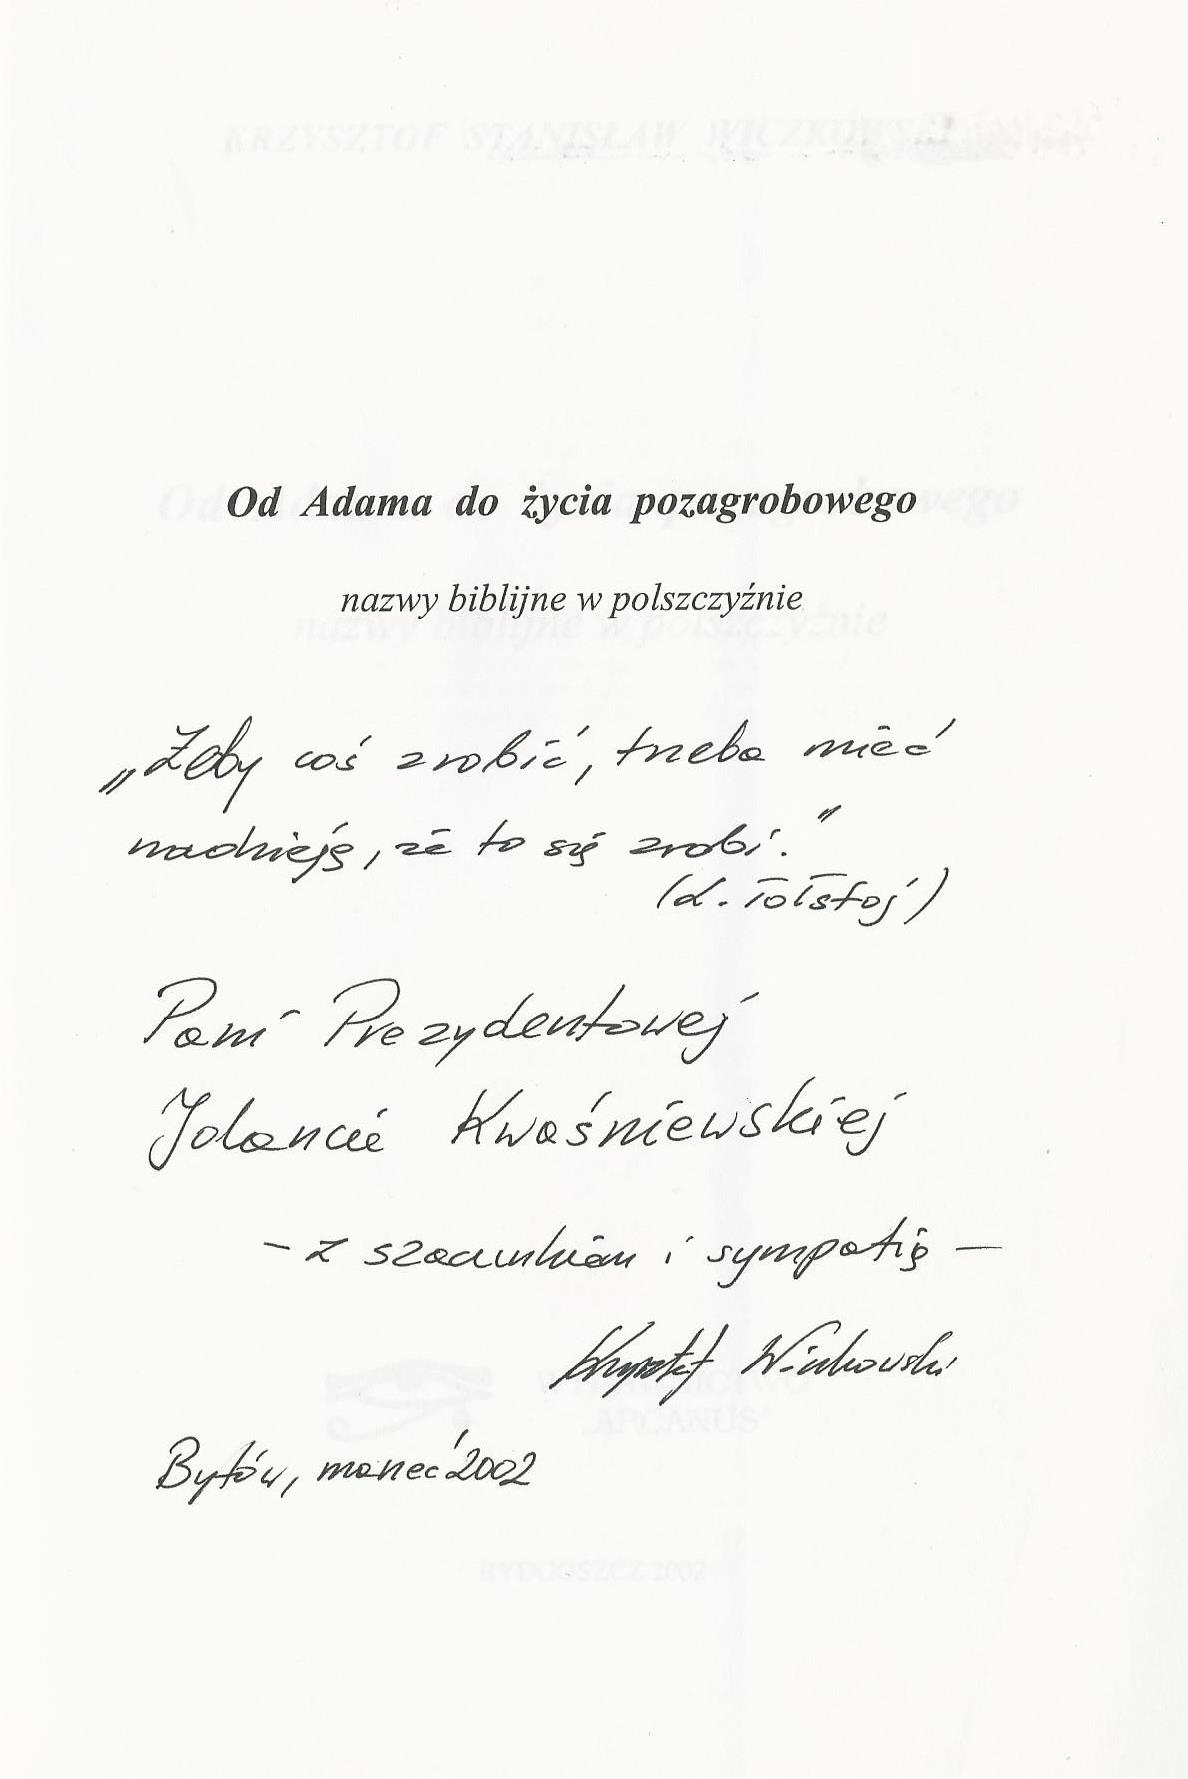 KRZYSZTOF STANISŁAW WICZKOWSKI
Od Adama do życia pozagrobowego
nazwy biblijne w polszczyźnie
„Żeby coś zrobić, trzeba mieć
nadzieję, że to się zrobi."
(L. Tołstoj)
Pani Prezydentowej
Jolancie Kwaśniewskiej
– z szacunkiem i sympatią –
Krzysztof Wiczkowski
WYDAWNICTWO
„ARCANUS"
Bytów, marzec '2002
BYDGOSZCZ 2002